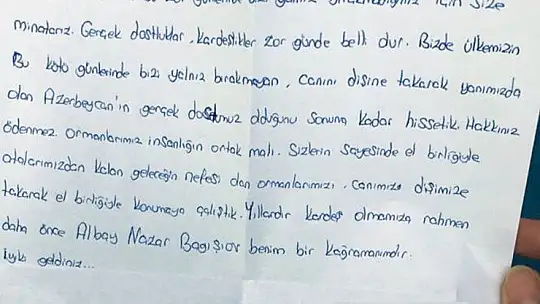 için size
minnetarız. Gerçek dostluklar, kardeşlikler zor günde belli dur. Bizde ülkemizin
Bu kötü günlerinde bizi yalnız bırakmayan, canını dişine takarak yanımızda
olan Azerbeycan'ın gerçek dostumuz olduğunu sonuna kadar hissetik. Hakkınız
ödenmez. Ormanlarımız insanlığın ortak malı. Sizlerin sayesinde el birligiyle
atalarımızdan kalan geleceğin nefesi olan ormanlarımızı, canımıza dişimize
takarak el birliğiyle korumaya çalıştık. Yıllardır kardeş olmamıza rahmen
daha önce Albay Nazar Bagışlov benim bir kağramanımdır.
iyki geldiniz...